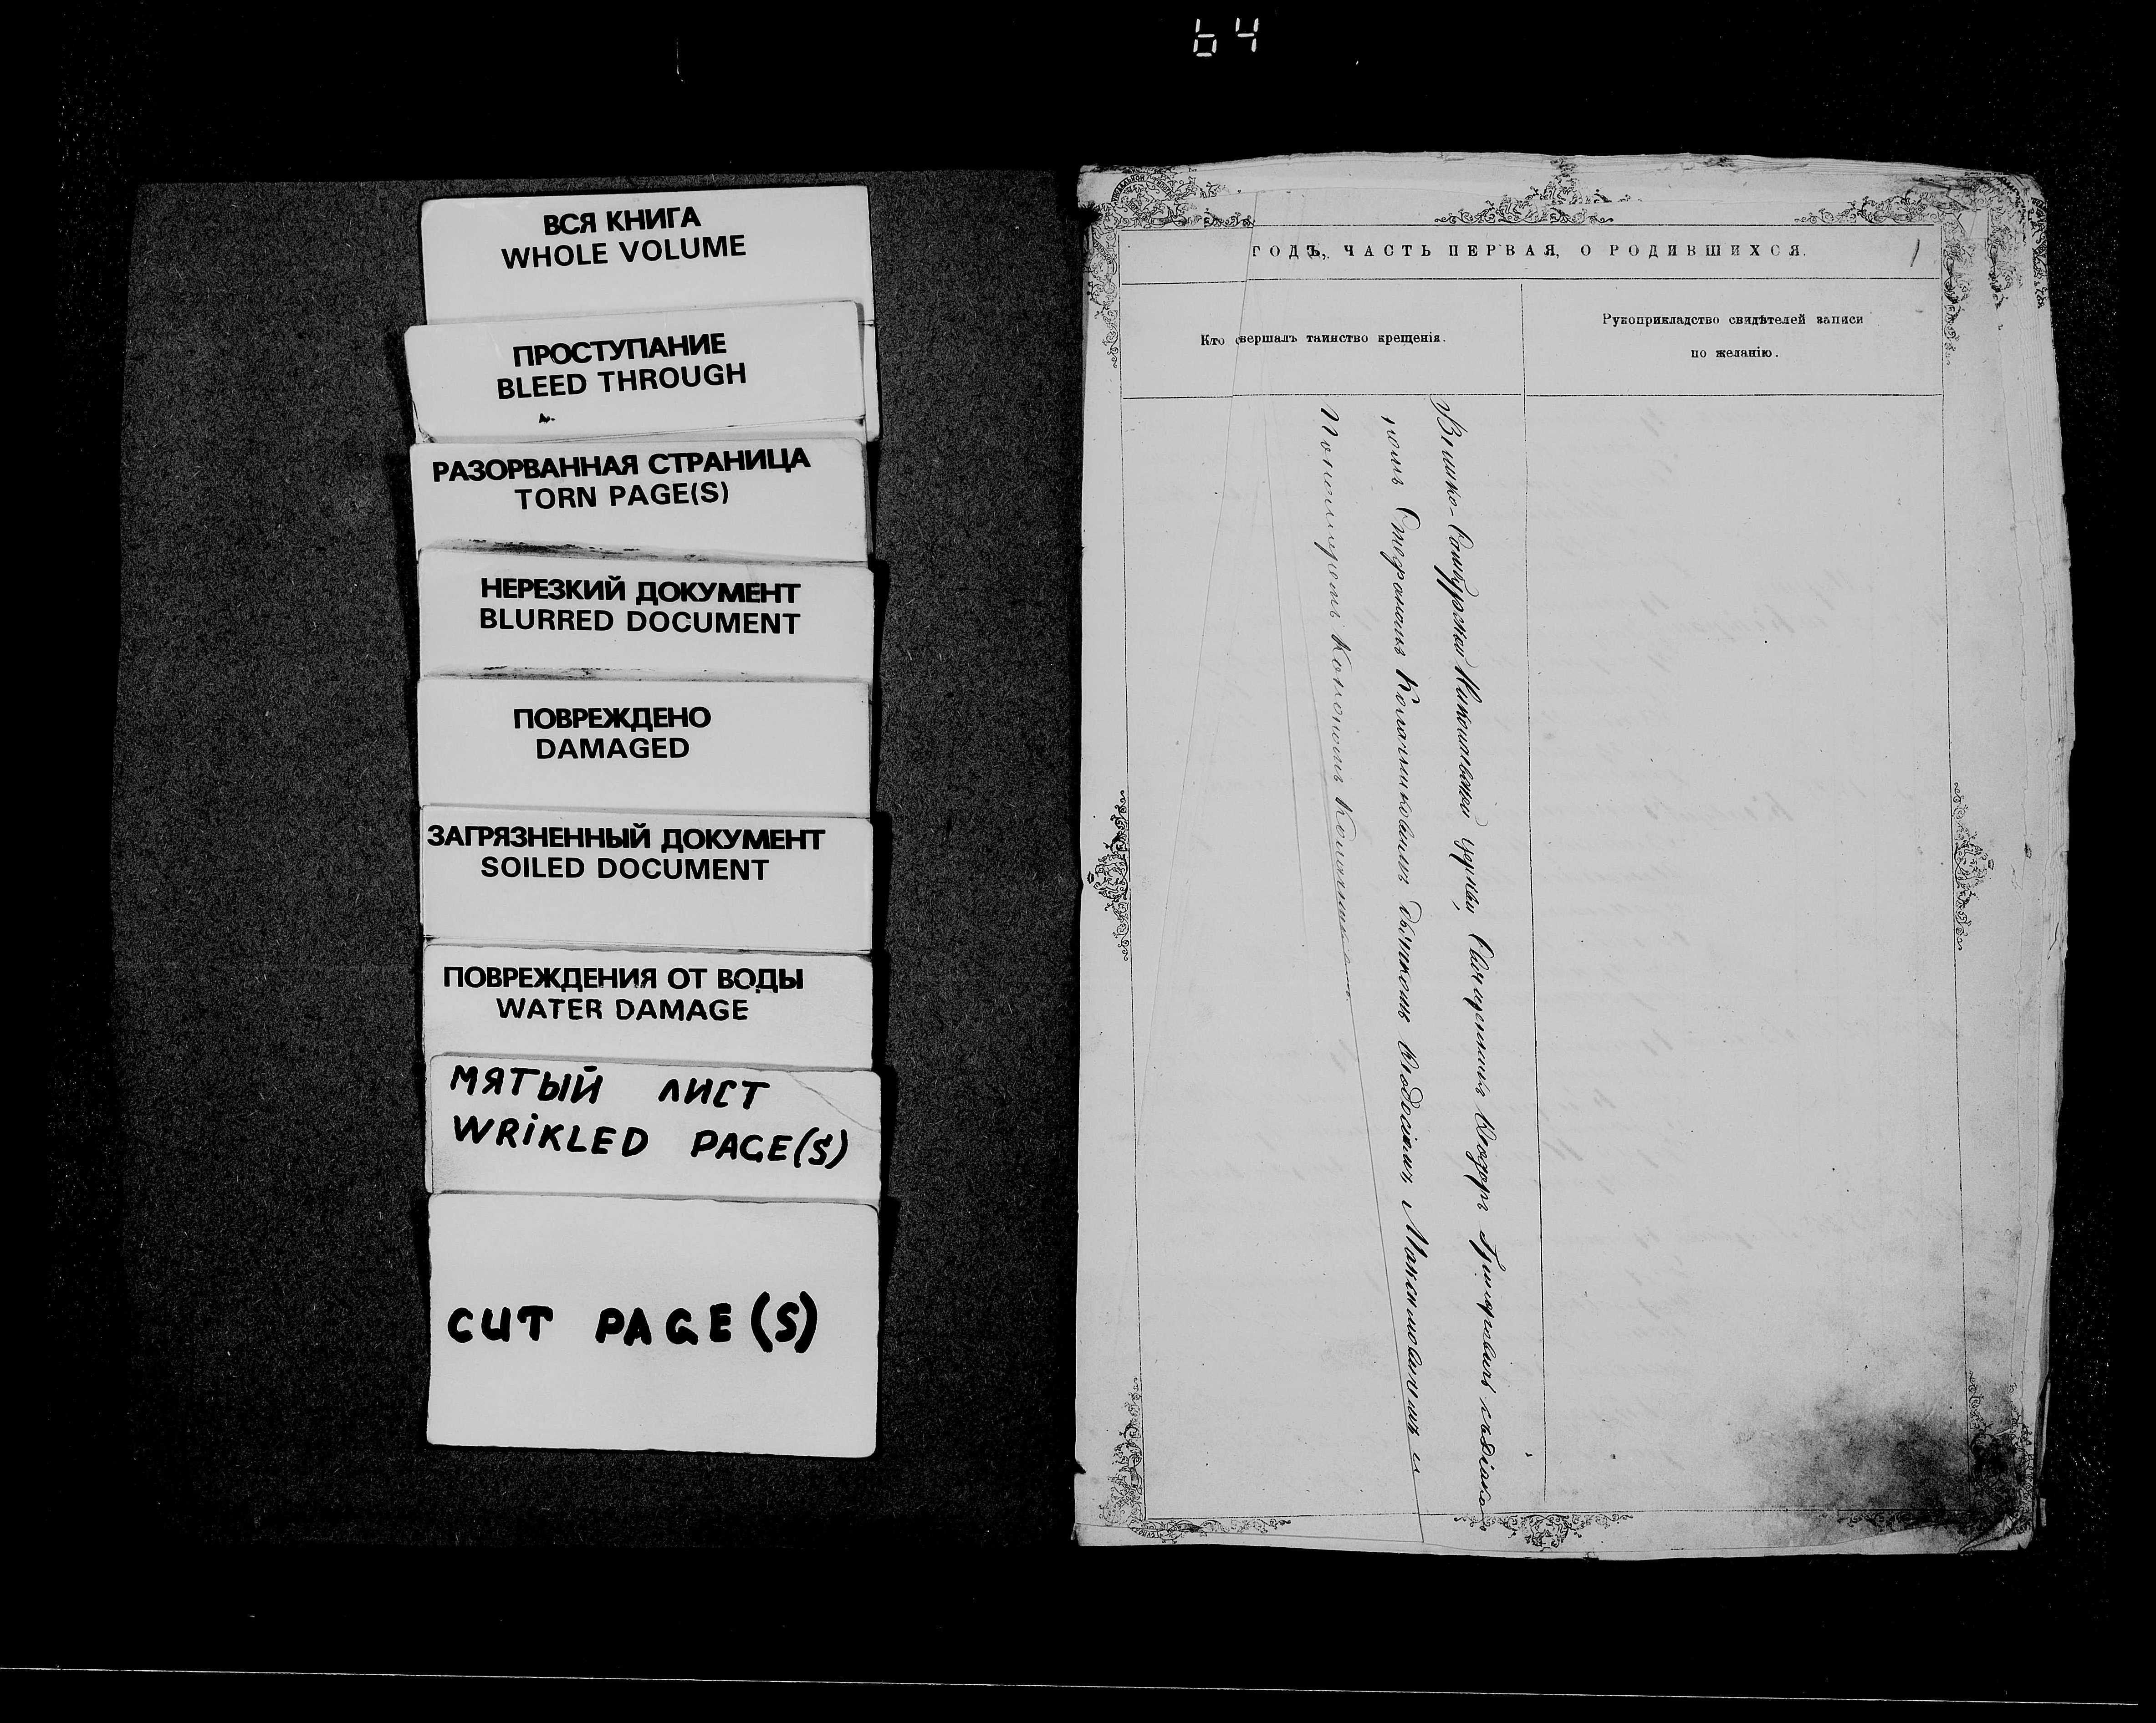 64
ВСЯ КНИГА
WHOLE VOLUME
ПРОСТУПАНИЕ
BLEED THROUGH
РАЗОРВАННАЯ СТРАНИЦА
TORN PAGE(S)
НЕРЕЗКИЙ ДОКУМЕНТ
BLURRED DOCUMENT
ПОВРЕЖДЕНО
DAMAGED
ЗАГРЯЗНЕННЫЙ ДОКУМЕНТ
SOILED DOCUMENT
ПОВРЕЖДЕНИЯ ОТ ВОДЫ
WATER DAMAGE
МЯТЫЙ ЛИСТ
WRIKLED PAGE(S)
CUT PAGE(S)
ГОДЪ, ЧАСТЬ ПЕРВАЯ, О РОДИВШИХСЯ.
1
Кто свершалъ таинство крещенія.
Рукоприкладство свидѣтелей записи
по желанію.
Николаевской церкви, Священникъ съ діако
номъ Стефаномъ дьячкомъ Максимовичемъ и
Пономаремъ